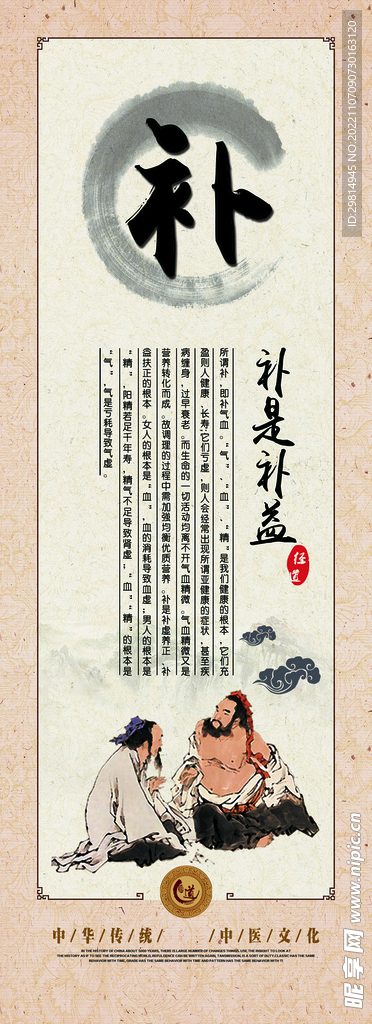 补
补是补益
经道
所谓补，即补气血。“气”、“血”、“精”是我们健康的根本，它们充
盈则人健康、长寿；它们亏虚，则人会经常出现所谓亚健康的症状，甚至疾
病缠身，过早衰老。而生命的一切活动均离不开气血精微。气血精微又是
营养转化而成。故调理的过程中需加强均衡优质营养。补是补虚养正，补
益扶正的根本。女人的根本是“血”，血的消耗导致血虚；男人的根本是
“精”，阳精若足千年寿，精气不足导致肾虚；“血”“精”的根本是
“气”，气是亏耗导致气虚。
道
中/华/传/统/ /中/医/文/化
IN THE HISTORY OF CHINA ABOUT 5000 YEARS, THERE IS LARGE NUMBER OF CHANGES THINGS, USE THE INSIGHT TO LOOK AT
THE HISTORY AS IF TO SEE THE RECIPROCATING WORLD,
BEHAVIOR WITH TIME,
ID:29814945 NO:20221107090730163120
昵享网 www.nipic.cn